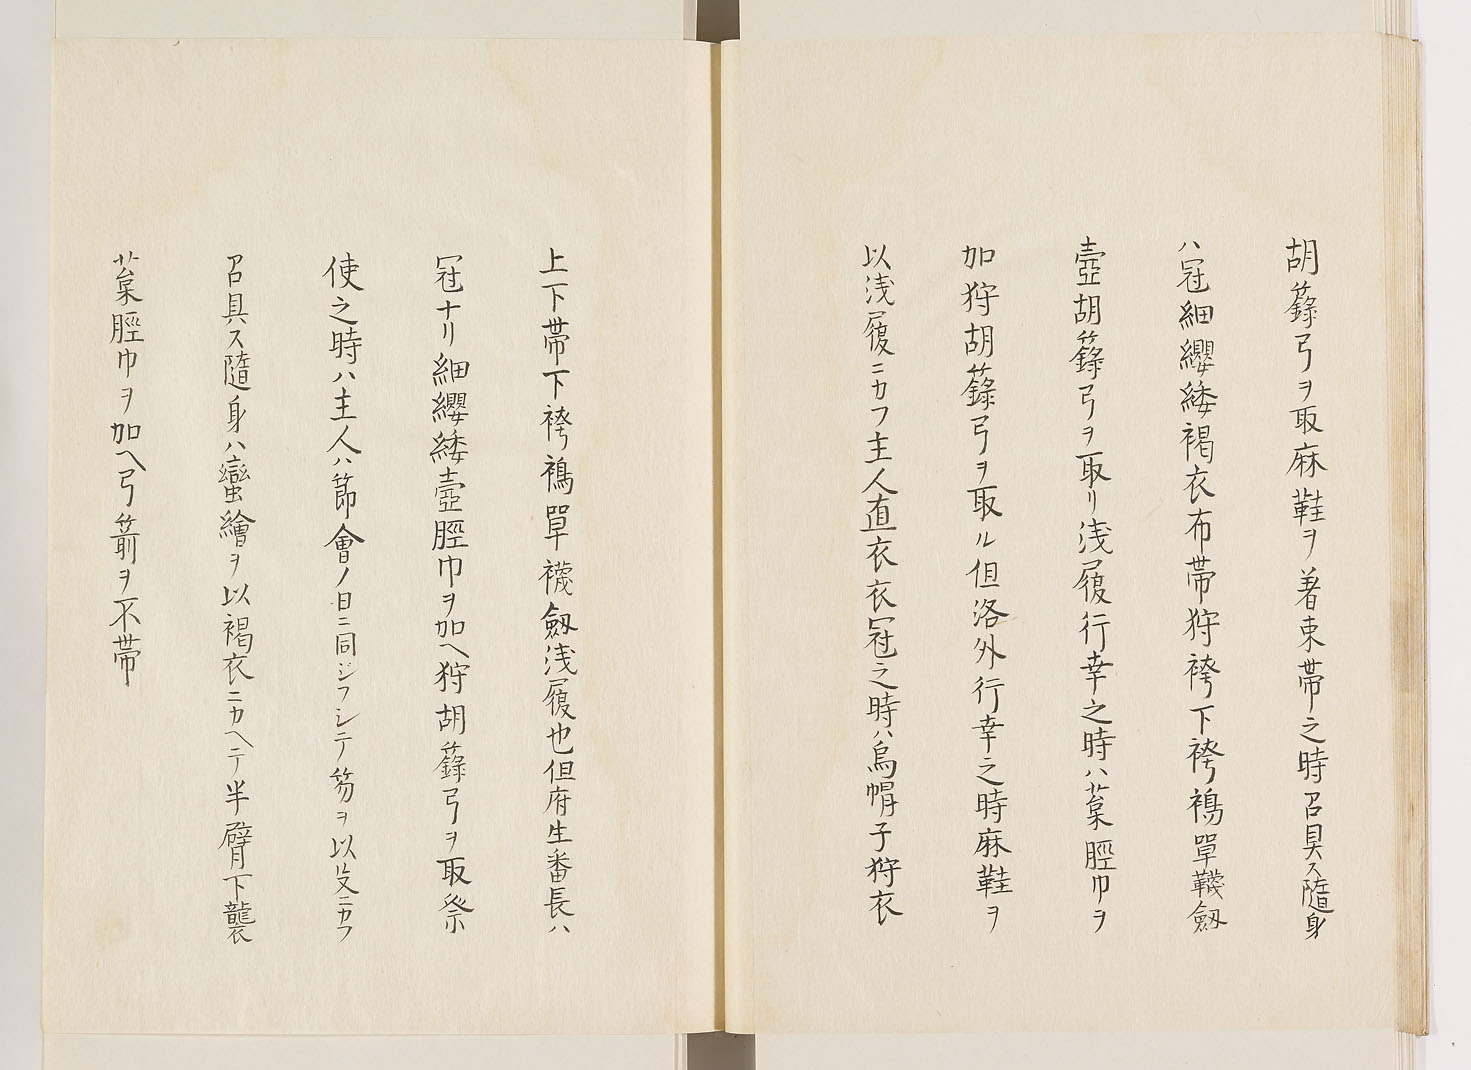 胡籙弓ヲ取麻鞋ヲ着束帯之時召具ス隨身
ハ冠細纓緌褐衣布帯狩袴下袴襪單韈劔
壺胡籙弓ヲ取リ浅履行幸之時ハ葈脛巾ヲ
加狩胡籙弓ヲ取ル但洛外行幸之時麻鞋ヲ
以浅履ニカフ主人直衣衣冠之時ハ烏帽子狩衣
上下帯下袴襪單襪劔浅履也但府生番長ハ
冠ナリ細纓緌壺脛巾ヲ加ヘ狩胡籙弓ヲ取祭
使之時ハ主人ハ節會ノ日ニ同ジフシテ笏ヲ以㚆ニカフ
召具ス隨身ハ蠻繪ヲ以褐衣ニカヘテ半臂下襲
葈脛巾ヲ加ヘ弓箭ヲ不帯